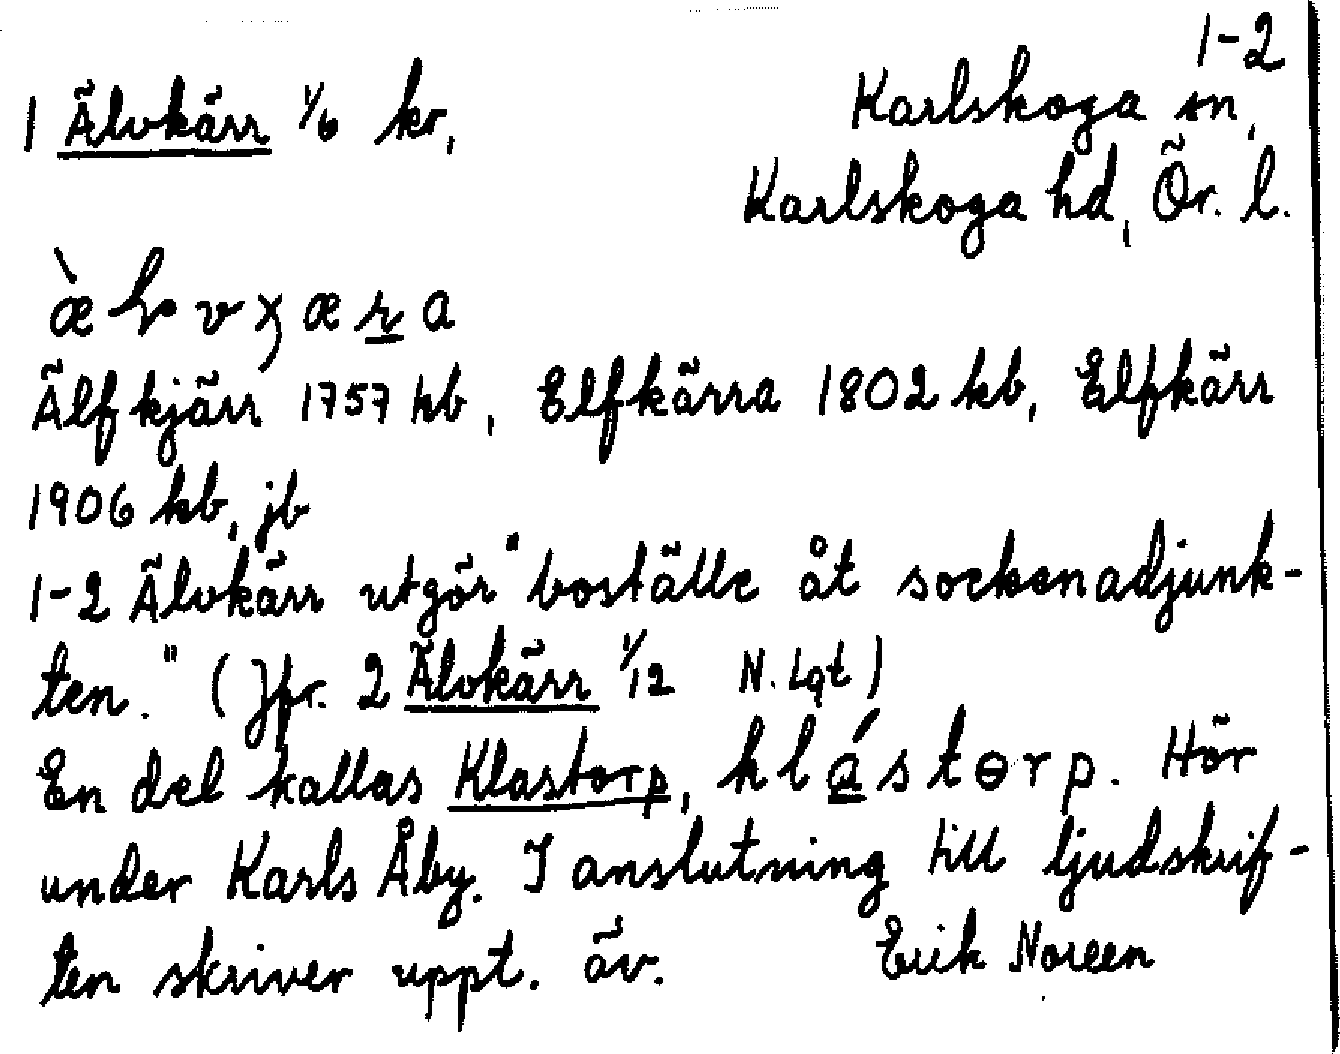 1-2
1 Älvkärr 1/6 kr, Karlskoga sn,
Karlskoga hd, Ör. l.
Älfkjärr 1757 kb, Elfkärra 1802 kb, Elfkärr
1906 kb, jb
1-2 Älvkärr utgör "boställe åt sockenadjunk-
ten." (Jfr. 2 Älvkärr 1/12 N. Lgt)
En del kallas Klastorp, klástorp. Hör
under Karls Åby. I anslutning till ljudskrif-
ten skriver uppt. äv. Erik Noreen